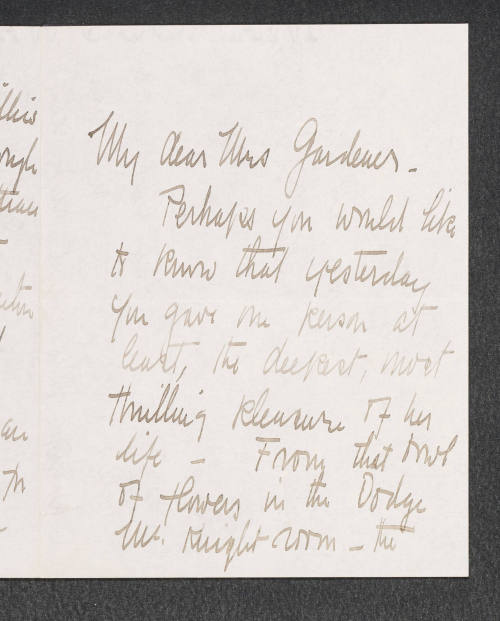 My dear Mrs Gardener -
Perhaps you would like
to know that yesterday
you gave one person at
least, the deepest, most
thrilling pleasure of her
life - From that bowl
of flowers in the Dodge
Mc. Knight room - the